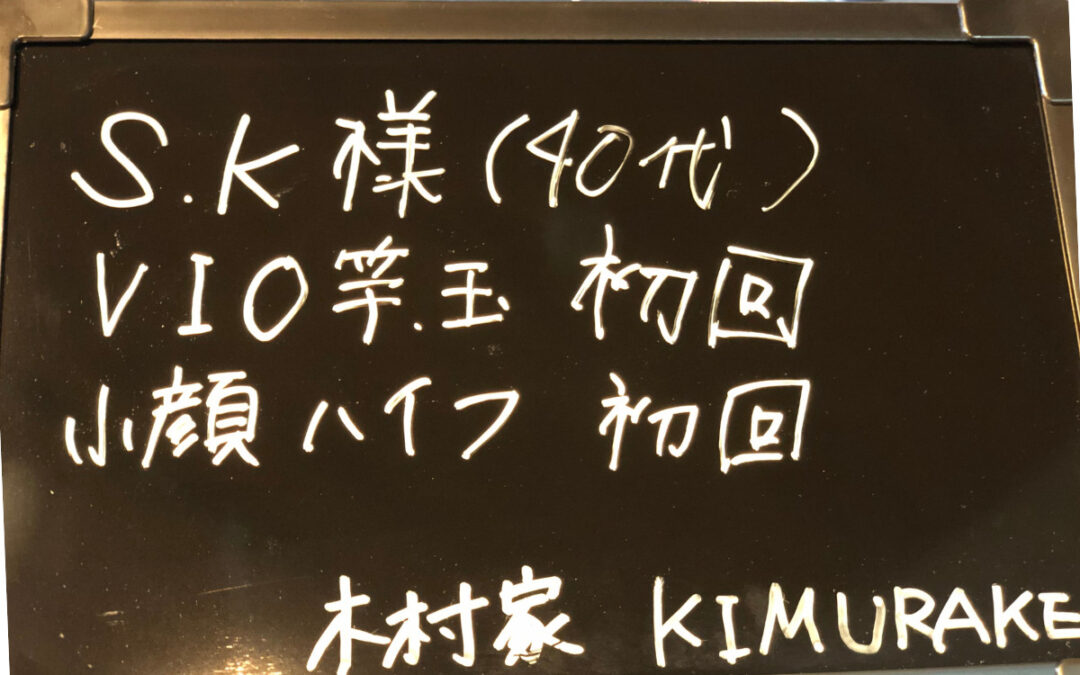 S.K様(40代)
VIO竿.玉 初回
小顔ハイフ 初回
木村家 KIMURAKE